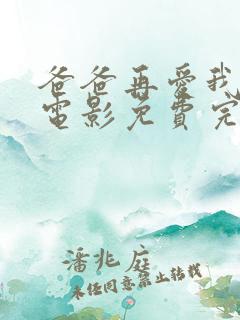 爸爸再愛我
電影免費完
潘兆庭
未任同意禁止转载